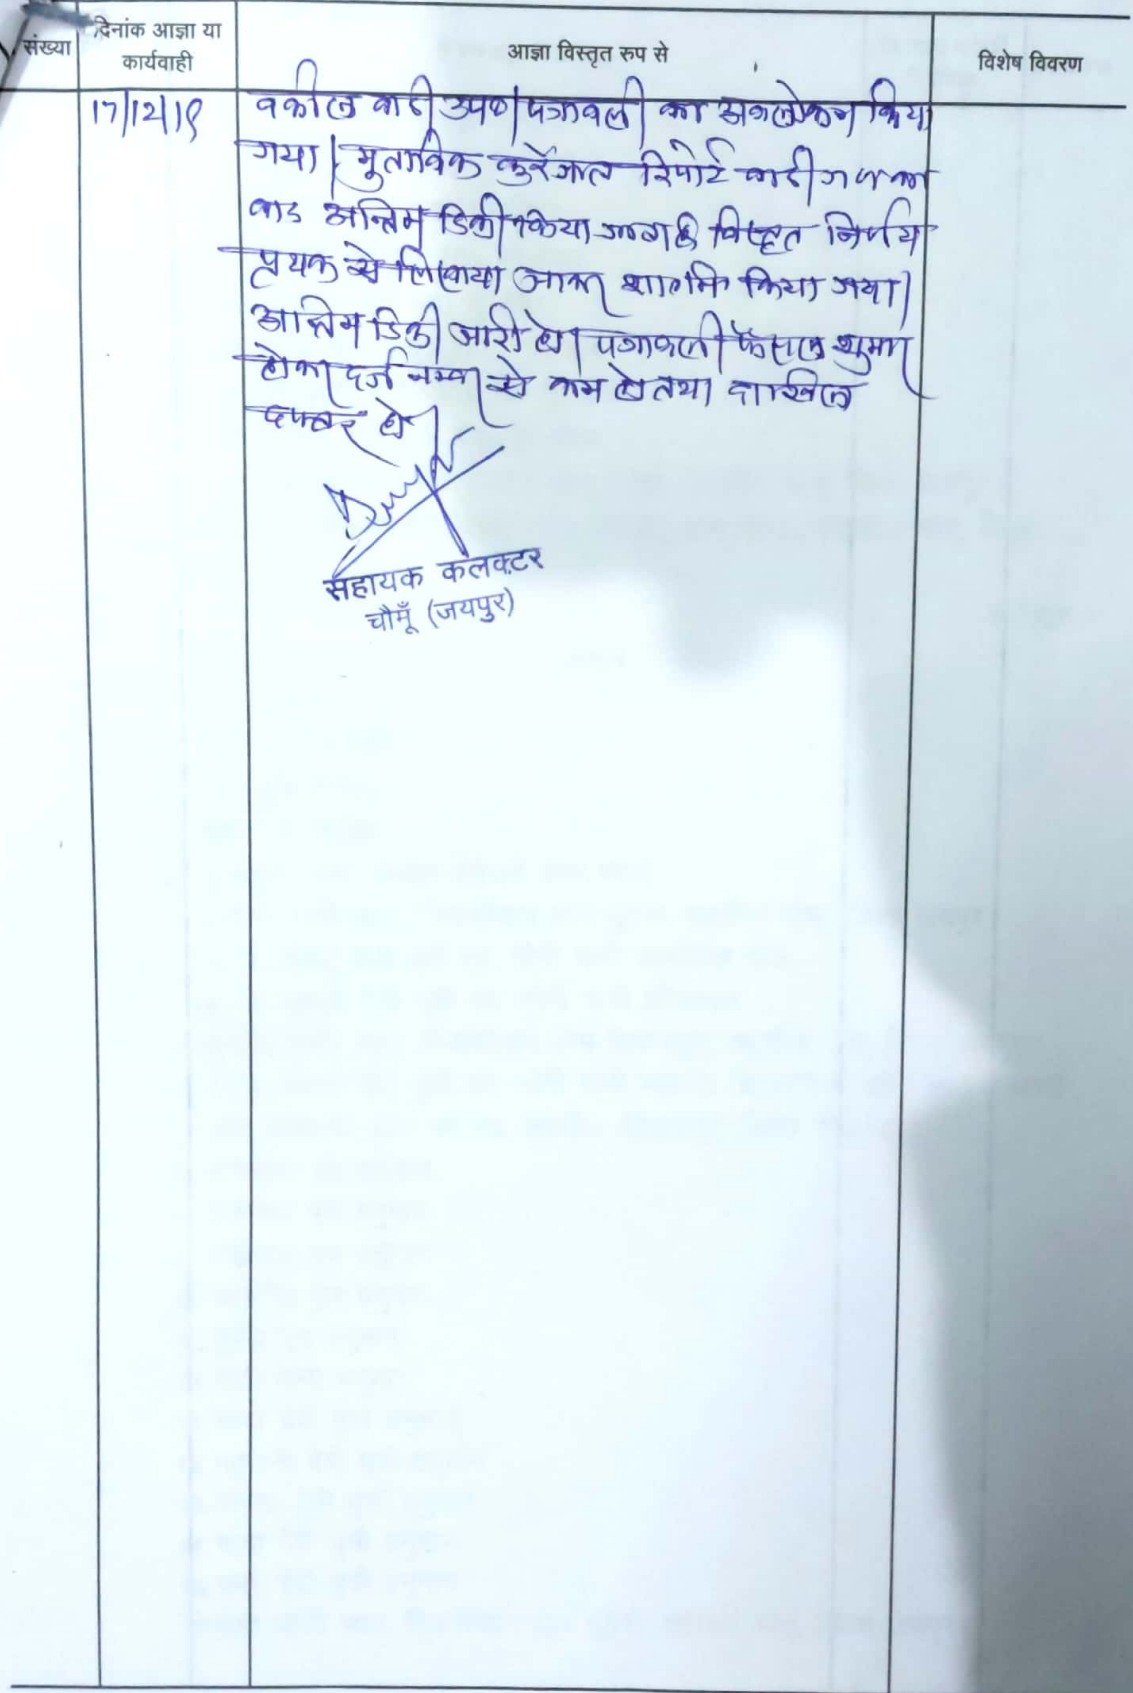 संख्या
दिनांक आज्ञा या
कार्यवाही
आज्ञा विस्तृत रुप से
विशेष विवरण
17/12/19
वकील वादी उप० पत्रावली का अवलोकन किया
गया। मुताबिक कुर्रेजात रिपोर्ट वादीगण का
वाद अन्तिम डिक्री किया जाता है विस्तृत निर्णय
पृथक से लिखाया जाकर शामिल किया गया।
अन्तिम डिक्री जारी हो। पत्रावली फैसल शुमार
होकर दर्ज नम्बर से कम हो तथा दाखिल
दफ्तर हो।
सहायक कलक्टर
चौमूँ (जयपुर)